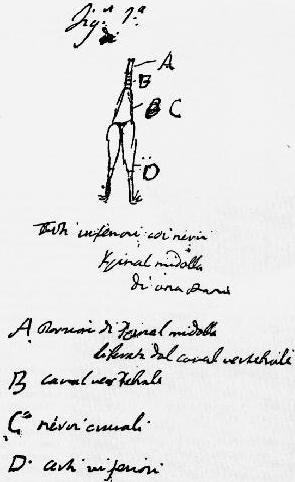 Fig.ª 1.ª
di
A
B
C
D
Arti inferiori coi nervi
spinal midolla
di una rana
A Porzioni di spinal midolla
liberate dal canal vertebrale
B canal vertebrale
C nervi crurali
D. arti inferiori